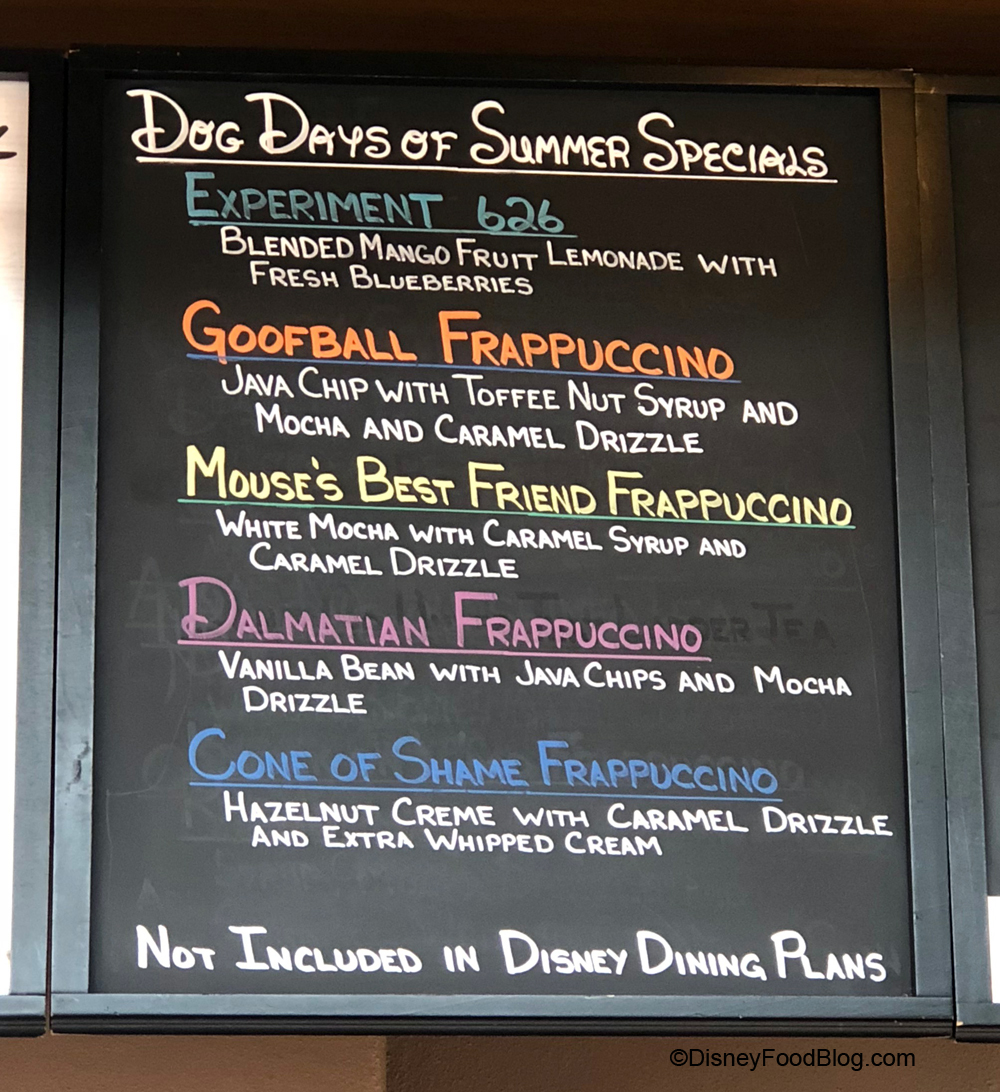 Dog Days of Summer Specials
Experiment 626
Blended Mango Fruit Lemonade with
Fresh Blueberries
Goofball Frappuccino
Java Chip with Toffee Nut Syrup and
Mocha and Caramel Drizzle
Mouse's Best Friend Frappuccino
White Mocha with Caramel Syrup and
Caramel Drizzle
Dalmatian Frappuccino
Vanilla Bean with Java Chips and Mocha
Drizzle
Cone of Shame Frappuccino
Hazelnut Creme with Caramel Drizzle
and Extra Whipped Cream
Not Included in Disney Dining Plans
©DisneyFoodBlog.com